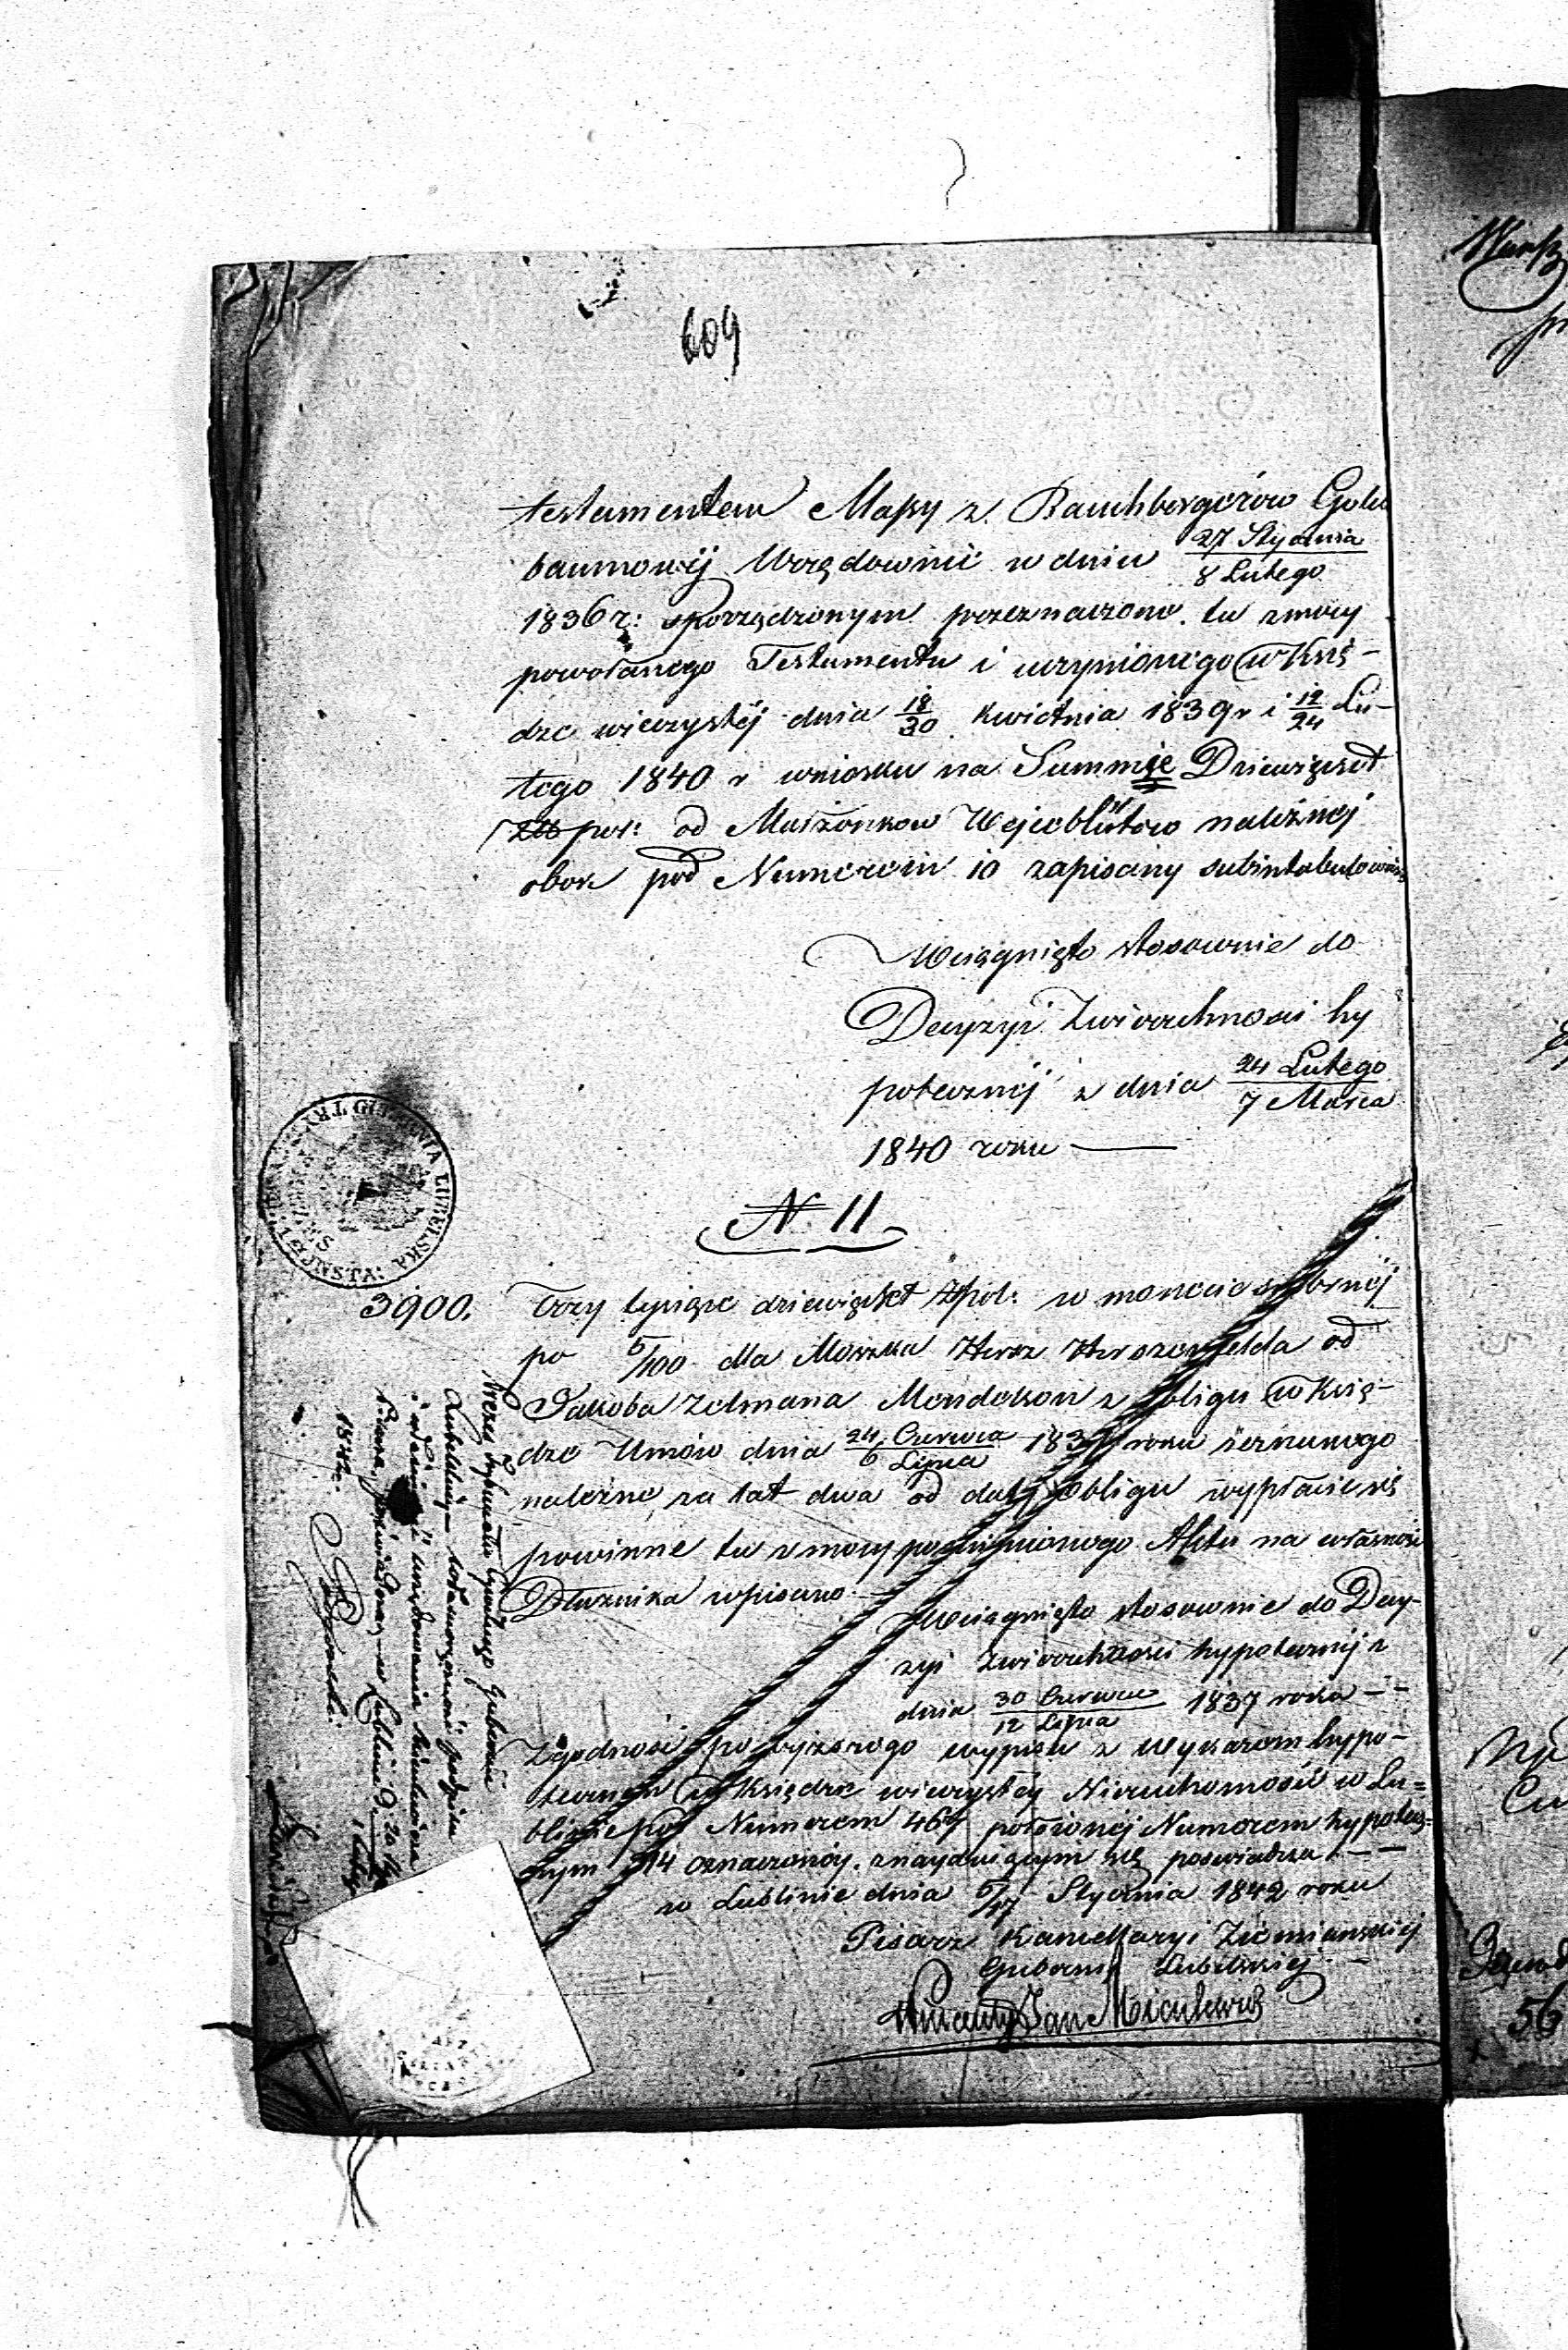 609
testamentem Massy z Rauchbergerów Gold
baumowej Urzędownie w dniu 27 Stycznia / 8 Lutego
1836 r: sporządzonym przeznaczone. tu z mocy
powołanego Testamentu i uczynionego w Księ-
dze wieczystej dnia 18/30 Kwietnia 1839 r i 12/24 Lu-
tego 1840 r wniosku na Summie Dziewięćset
Złt pol: od Małżonków Wejcblutów należnej
obok pod Numerem 10 zapisany subintabulowano
Wciągnięto stosownie do
Decyzyi Zwierzchności hy
potecznej z dnia 24 Lutego / 7 Marca
1840 roku —
N 11
3900. Trzy tysiące dziewięćset Złpol: w monecie srebrnej
po 5/100 dla Moszka Hersz Herszenfelda od
Jakoba Zelmana Mendelson z obligu w Księ-
dze Umów dnia 24 Czerwca / 6 Lipca 1837 roku zeznanego
należne za lat dwa od daty obligu wypłacić się
powinne tu z mocy pomienionego Aktu na własności
Dłużnika wpisano
Wciągnięto stosownie do Decy-
zyi Zwierzchności hypotecznej z
dnia 30 Czerwca / 12 Lipca 1837 roku - -
Zgodność powyższego wypisu z Wykazem hypo-
tecznym w Księdze wieczystej Nieruchomości w Lu=
blinie pod Numerem 464 położonej Numerem hypotecz=
nym 314 oznaczonej. znajdującym się poświadcza - -
w Lublinie dnia 5/17 Stycznia 1842 roku
Pisarz Kancellaryi Ziemiańskiej
Gubernii Lubelskiej -
Wincenty Jan
Prezes Trybunału Cywilnego Gubernii
Lubelskiej
1842.
LUBELSKA